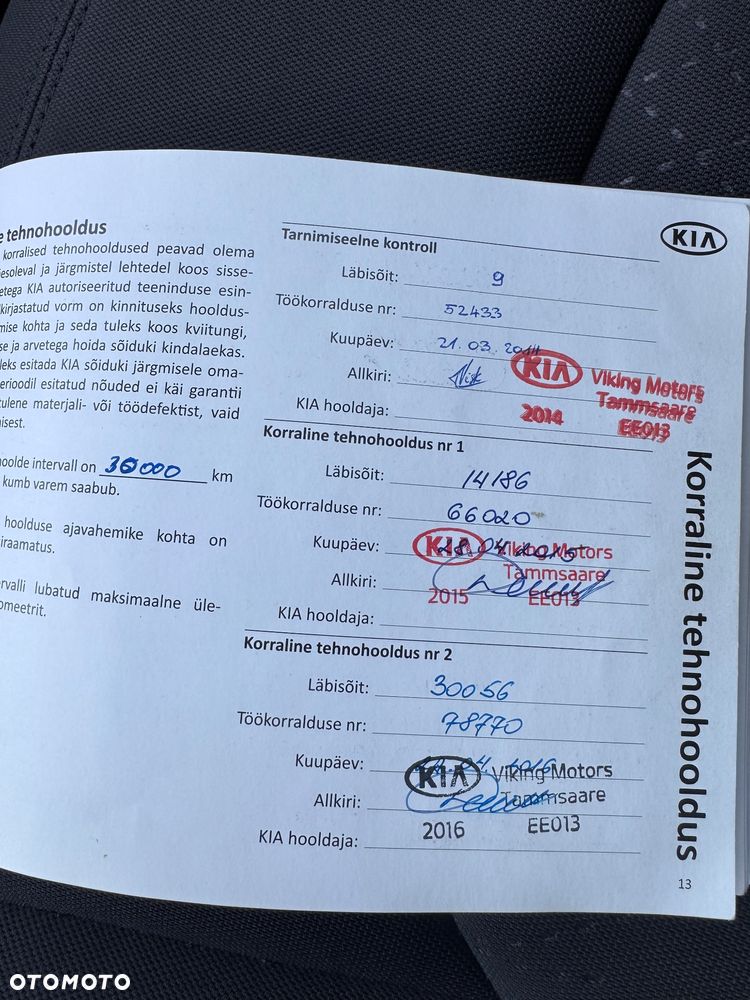 e tehnohooldus
korralised tehnohooldused peavad olema
esoleval ja järgmistel lehtedel koos sisse-
etega KIA autoriseeritud teeninduse esin-
lkirjastatud vorm on kinnituseks hooldus-
mise kohta ja seda tuleks koos kviitungi,
se ja arvetega hoida sõiduki kindalaekas.
leks esitada KIA sõiduki järgmisele oma-
erioodil esitatud nõuded ei käi garantii
tulene materjali- või töödefektist, vaid
misest.
hoolde intervall on 30000 km
kumb varem saabub.
hoolduse ajavahemike kohta on
iraamatus.
ervalli lubatud maksimaalne üle-
omeetrit.
KIA
Tarnimiseelne kontroll
Läbisõit: 9
Töökorralduse nr: 52433
Kuupäev: 21.03.2014
Allkiri:
KIA hooldaja:
KIA Viking Motors
Tammsaare
2014 EE013
Korraline tehnohooldus nr 1
Läbisõit: 14186
Töökorralduse nr: 66020
Kuupäev: 28.04.2015
Allkiri:
KIA hooldaja:
KIA Viking Motors
Tammsaare
2015 EE013
Korraline tehnohooldus nr 2
Läbisõit: 30056
Töökorralduse nr: 78770
Kuupäev: 04.2016
Allkiri:
KIA hooldaja:
KIA Viking Motors
Tammsaare
2016 EE013
Korraline tehnohooldus
13
OTOMOTO